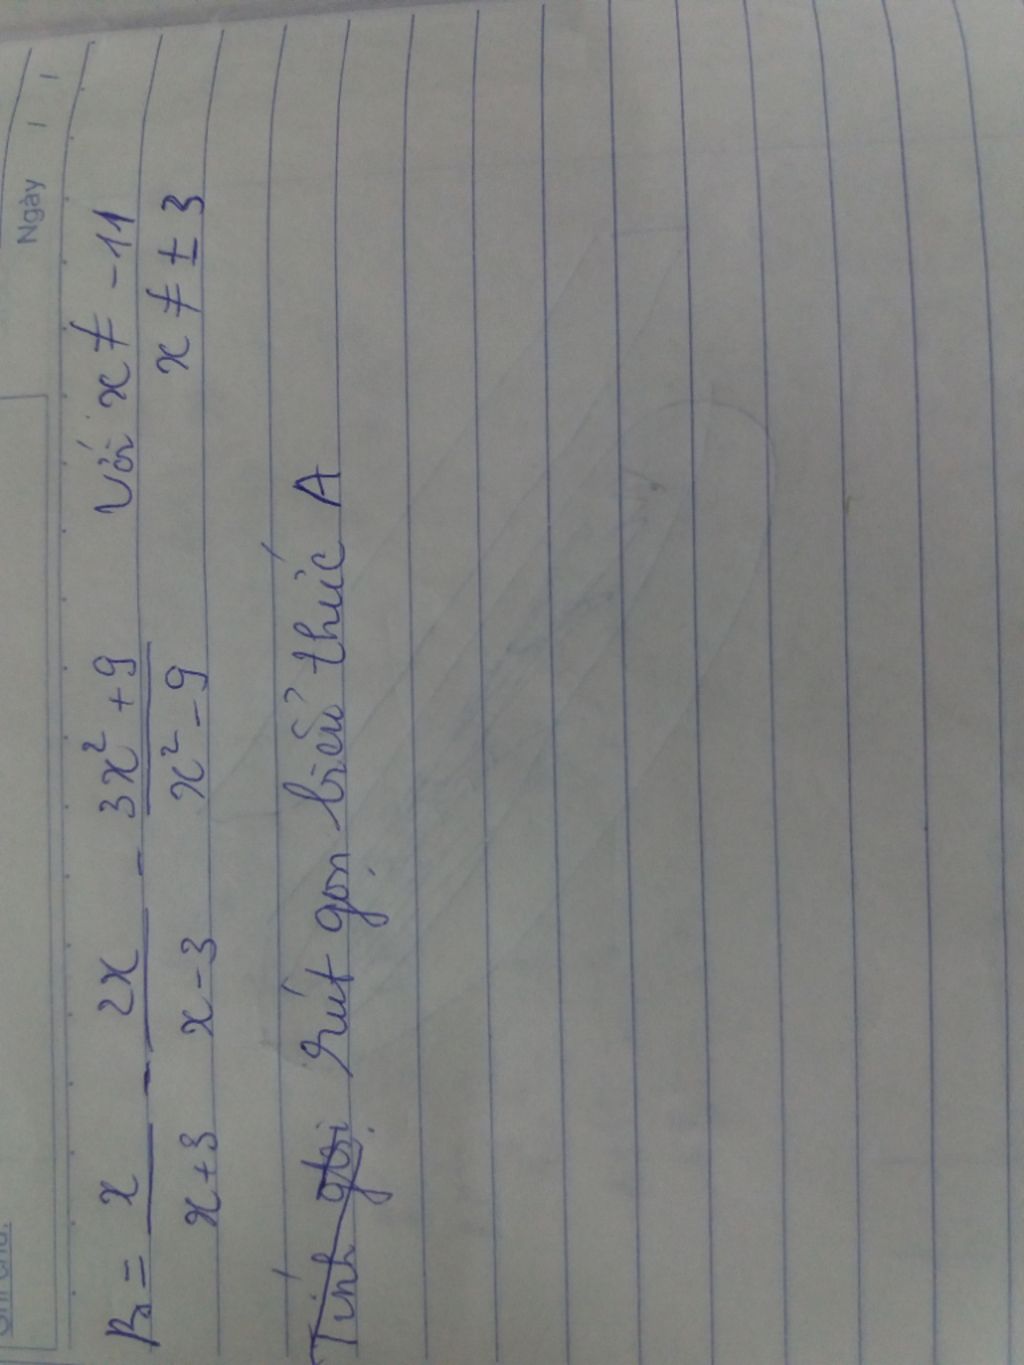 Ngày / /
B = x/(x+3) - 2x/(x-3) - (3x²+9)/(x²-9) Với x ≠ -11
x ≠ ± 3
Tính Rút gọn biểu thức A